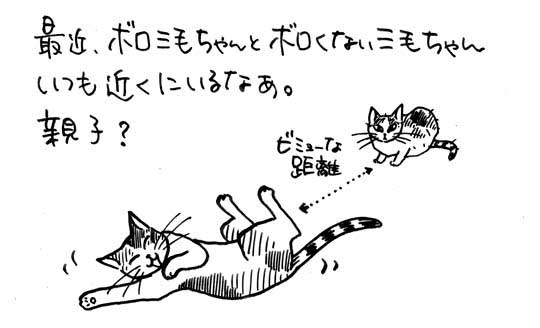 最近、ボロ三毛ちゃんとボロくない三毛ちゃん
いつも近くにいるなぁ。
親子？
ビミョーな
距離